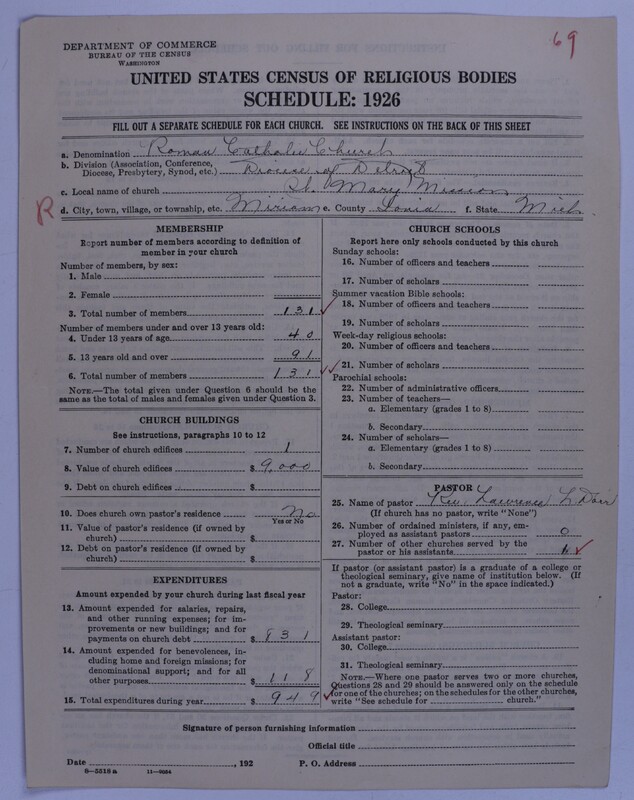 69
DEPARTMENT OF COMMERCE
BUREAU OF THE CENSUS
WASHINGTON
UNITED STATES CENSUS OF RELIGIOUS BODIES
SCHEDULE: 1926
FILL OUT A SEPARATE SCHEDULE FOR EACH CHURCH. SEE INSTRUCTIONS ON THE BACK OF THIS SHEET
a. Denomination Roman Catholic Church
b. Division (Association, Conference, Diocese, Presbytery, Synod, etc.) Diocese of Detroit
c. Local name of church St. Mary Mission
R d. City, town, village, or township, etc. Miriam e. County Ionia f. State Mich
MEMBERSHIP
Report number of members according to definition of
member in your church
Number of members, by sex:
1. Male
2. Female
3. Total number of members 131
Number of members under and over 13 years old:
4. Under 13 years of age 40
5. 13 years old and over 91
6. Total number of members 131
NOTE.—The total given under Question 6 should be
same as the total of males and females given under Question 3.
CHURCH BUILDINGS
See instructions, paragraphs 10 to 12
7. Number of church edifices 1
8. Value of church edifices $ 9,000
9. Debt on church edifices $
10. Does church own pastor's residence No
Yes or No
11. Value of pastor's residence (if owned by
church) $
12. Debt on pastor's residence (if owned by
church) $
EXPENDITURES
Amount expended by your church during last fiscal year
13. Amount expended for salaries, repairs,
and other running expenses; for im-
provements or new buildings; and for
payments on church debt $ 831
14. Amount expended for benevolences, in-
cluding home and foreign missions; for
denominational support; and for all
other purposes $ 118
15. Total expenditures during year $ 949
CHURCH SCHOOLS
Report here only schools conducted by this church
Sunday schools:
16. Number of officers and teachers
17. Number of scholars
Summer vacation Bible schools:
18. Number of officers and teachers
19. Number of scholars
Week-day religious schools:
20. Number of officers and teachers
21. Number of scholars
Parochial schools:
22. Number of administrative officers
23. Number of teachers—
a. Elementary (grades 1 to 8)
b. Secondary
24. Number of scholars—
a. Elementary (grades 1 to 8)
b. Secondary
PASTOR
25. Name of pastor Rev. Lawrence L
(If church has no pastor, write "None")
26. Number of ordained ministers, if any, em-
ployed as assistant pastors 0
27. Number of other churches served by the
pastor or his assistants
If pastor (or assistant pastor) is a graduate of a college or
theological seminary, give name of institution below. (If
not a graduate, write "No" in the space indicated.)
Pastor:
28. College
29. Theological seminary
Assistant pastor:
30. College
31. Theological seminary
NOTE.—Where one pastor serves two or more churches,
Questions 28 and 29 should be answered only on the schedule
for one of the churches; on the schedules for the other churches,
write "See schedule for church."
Signature of person furnishing information
Official title
Date , 192 P. O. Address
8—5518a 11—9034